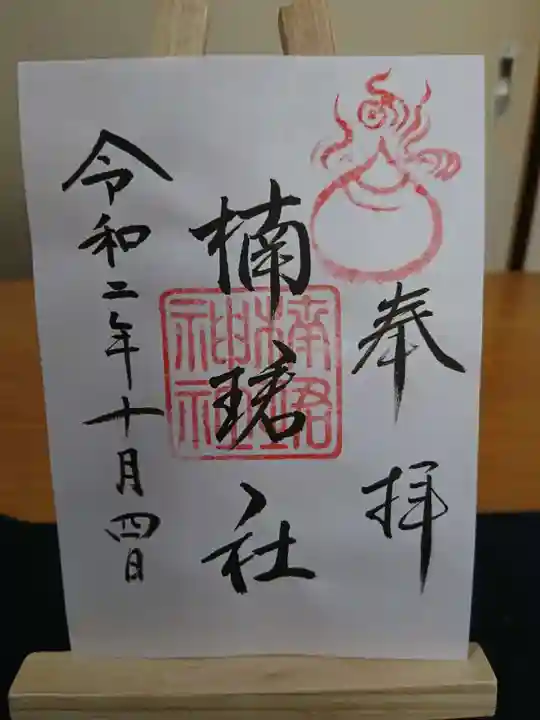 奉拝
楠珺社
楠珺
神社
令和二年十月四日